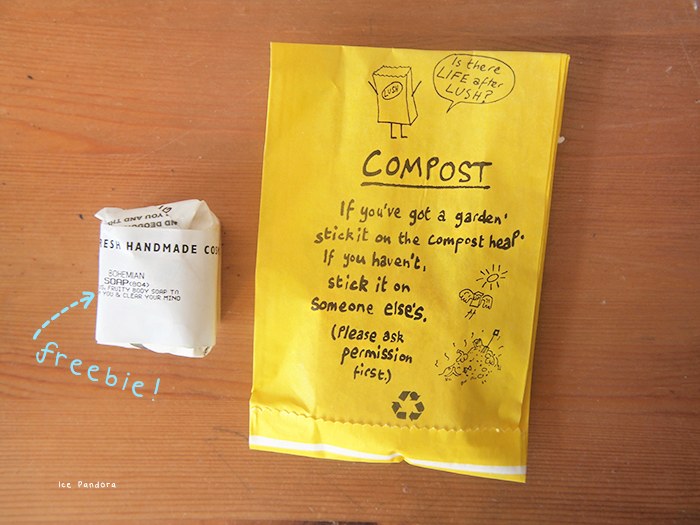 Is there
LIFE after
LUSH?
LUSH
COMPOST
If you've got a garden,
stick it on the compost heap.
If you haven't,
stick it on
someone else's.
(Please ask
permission
first.)
YOU AND
ND DEODOR
RESH HANDMADE COS
BOHEMIAN
SOAP (804)
FRUITY BODY SOAP TO
YOU & CLEAR YOUR MIND
freebie!
Ice Pandora